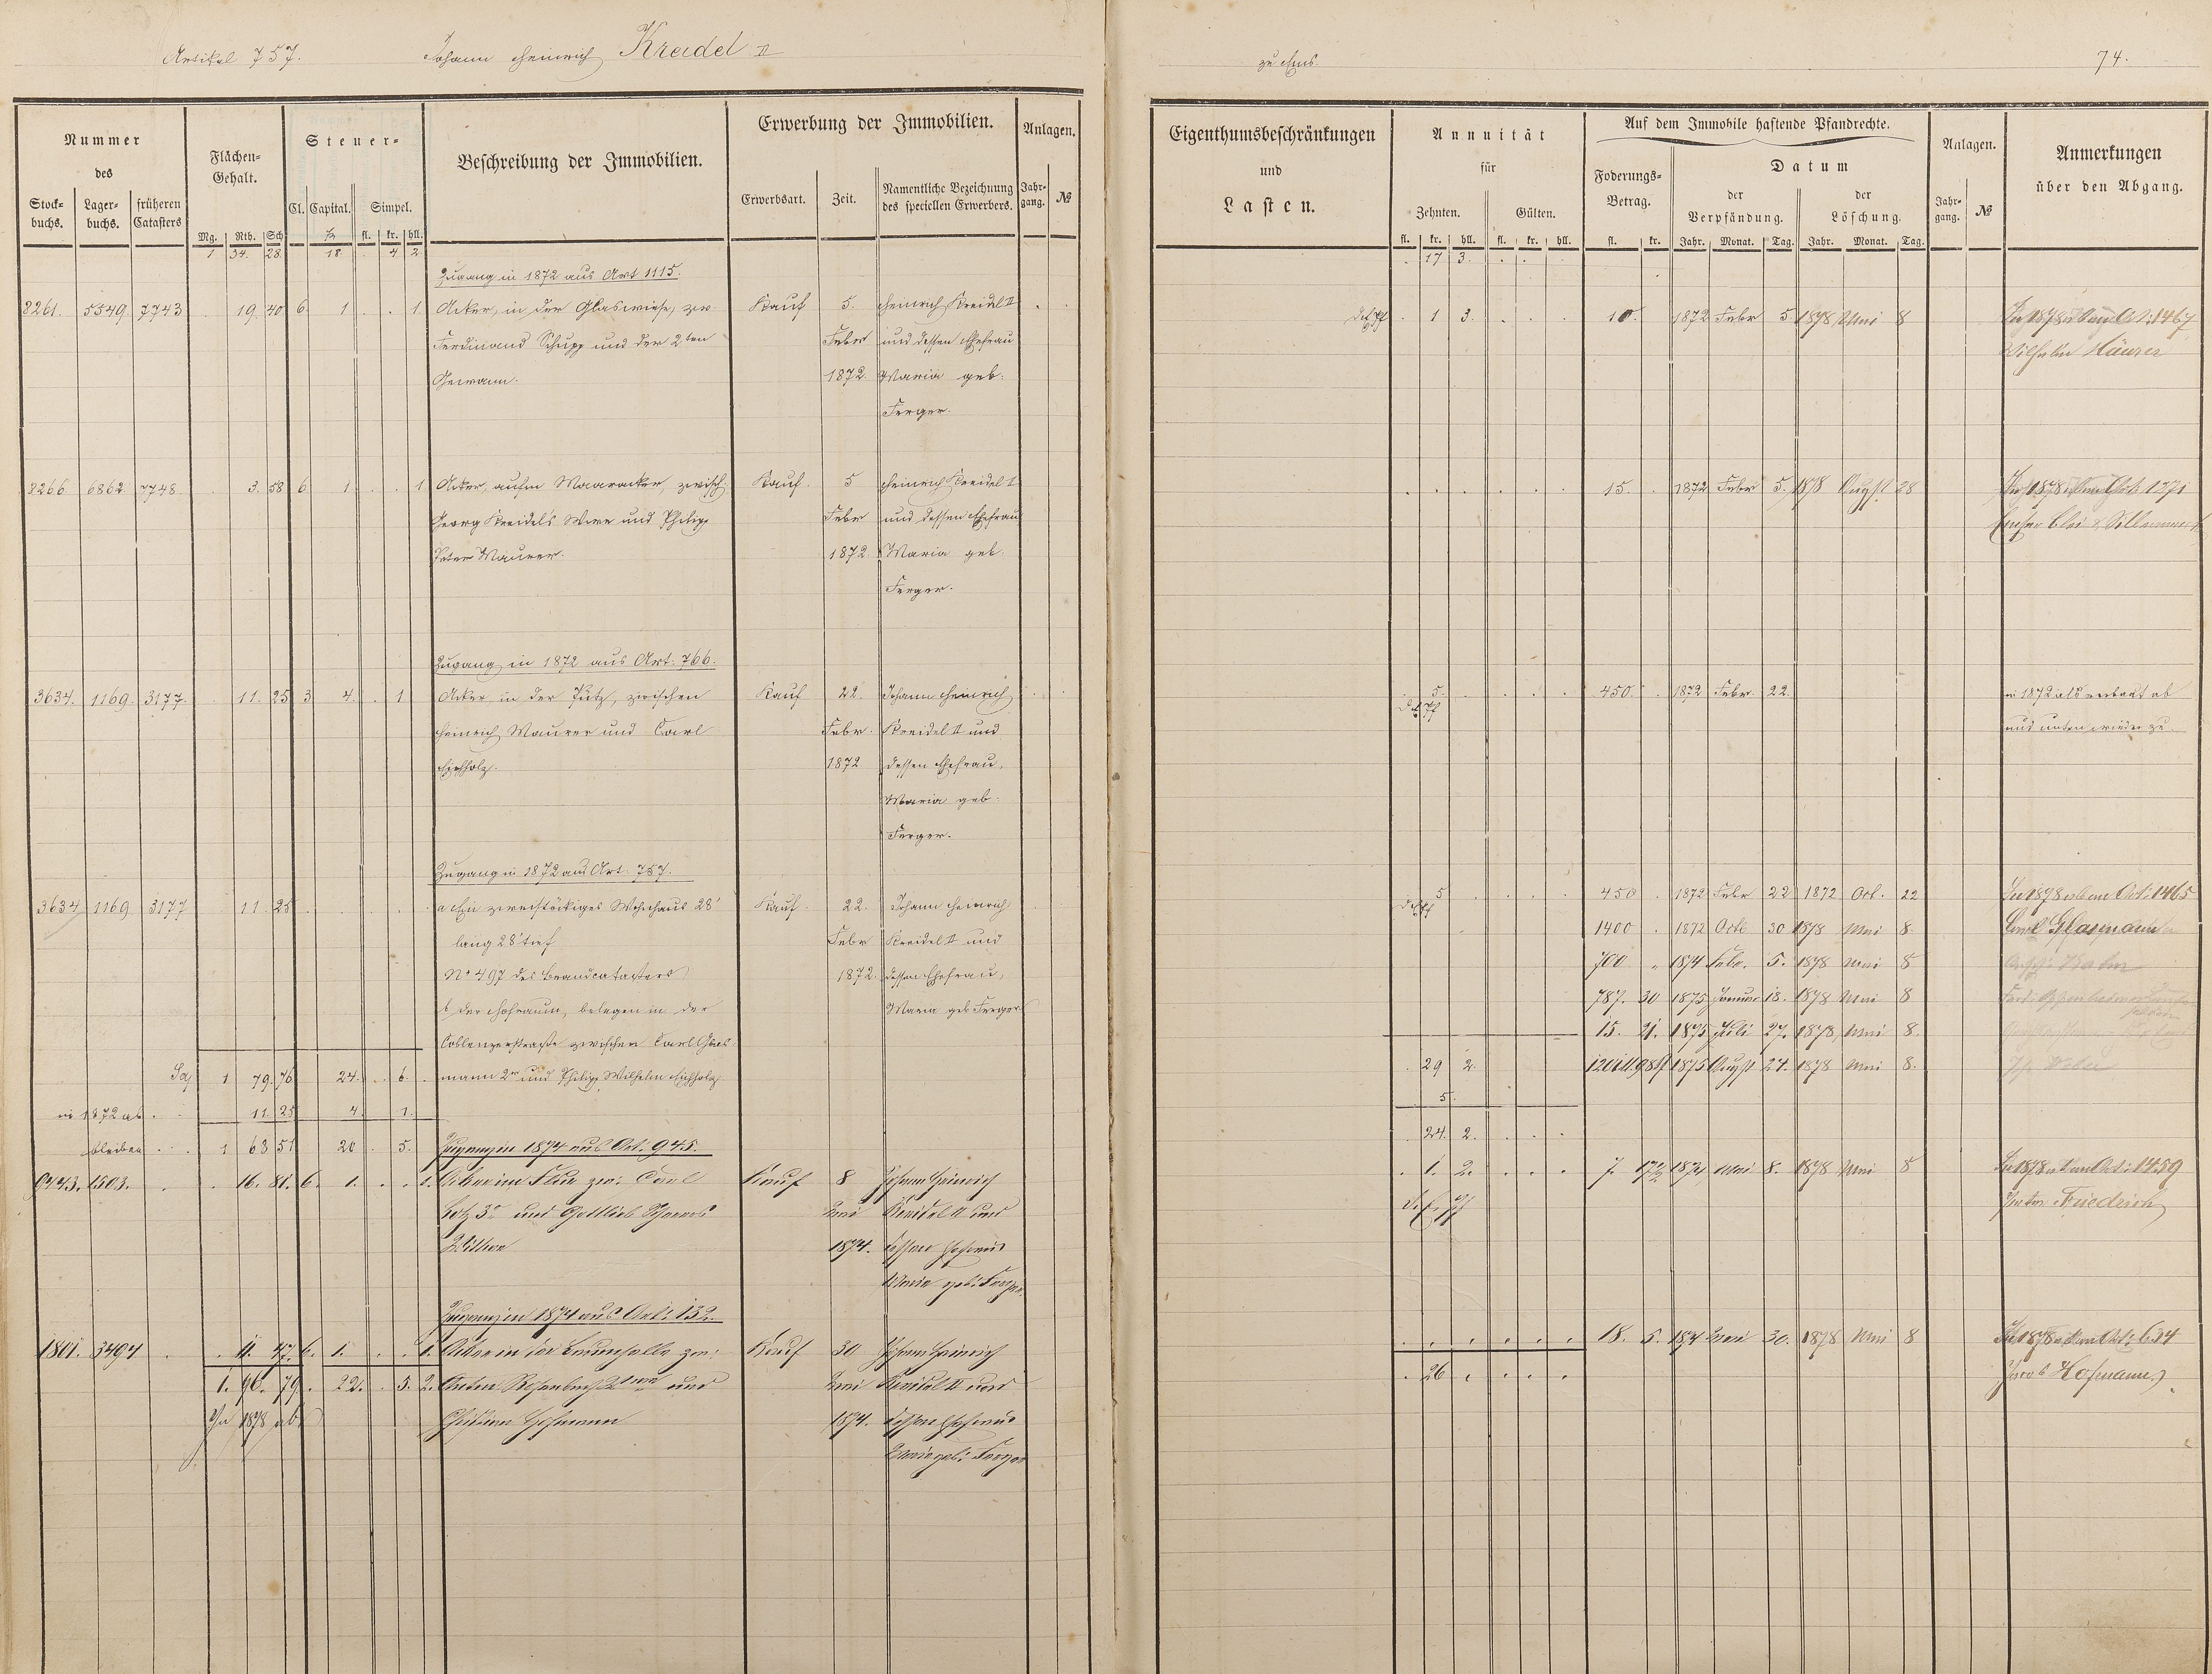 Artikel 757. Johann Heinrich Kreidel II
zu Ems 74.
Nummer
des
Stock-
buchs.
Lager-
buchs.
früheren
Catasters
Flächen-
Gehalt.
Mg. Rth. Sch.
Steuer-
Cl. Capital. Simpel.
fl. kr. hll.
Beschreibung der Immobilien.
Erwerbung der Immobilien.
Erwerbsart. Zeit.
Namentliche Bezeichnung
des speciellen Erwerbers.
Anlagen.
Jahr-
gang. №
Eigenthumsbeschränkungen
und
Lasten.
Annuität
für
Zehnten. Gülten.
fl. kr. hll. fl. kr. hll.
Auf dem Immobile haftende Pfandrechte.
Foderungs-
Betrag.
fl. kr.
Datum
der
Verpfändung.
Jahr. Monat. Tag.
der
Löschung.
Jahr. Monat. Tag.
Anlagen.
Jahr-
gang. №
Anmerkungen
über den Abgang.
1 34. 28. 18. 4 2. 17 3.
Zugang in 1872 aus Art 1115.
8261. 5549. 7743 19. 40 6. 1 1. Acker, in der Glaswiese, zw. Kauf 5. Heinrich Kreidel II 1 3. 10. 1872 Febr 5 1878 Mai 8 In 1878 Art: 1467
Ferdinand Schupp und der 2ten Febr und dessen Ehefrau Wilhelm Häuser
Gewann. 1872 Maria geb.
Ferger.
8266. 6862 7748 3. 58 6 1 1 Acker, aufm Maaracker, zwisch. Kauf. 5 Heinrich Kreidel II 15. 1872 Febr 5. 1878 August 28 In 1878 Art. 1371
Georg Kreidel's Wwe und Philipp Febr und dessen Ehefrau Emser Blei &
Peter Maurer. 1872. Maria geb.
Ferger.
Zugang in 1872 aus Art: 766.
3634. 1169. 3177. 11. 25 3 4. 1 Acker in der Pütz, zwischen Kauf 22. Johann Heinrich 5. 450. 1872 Febr. 22. in 1872 als verbaut ab
Heinrich Maurer und Carl Febr. Kreidel II und und unten wieder zu.
Eichholz. 1872 dessen Ehefrau,
Maria geb.
Ferger.
Zugang in 1872 aus Art. 757.
3634 1169 3177 11. 25 a Ein zweistöckiges Wohnhaus 28' Kauf. 22. Johann Heinrich 5 450 1872 Febr 22 1872 Oct. 22 In 1878 Art: 1465
lang 28' tief Febr Kreidel II und 1400 1872 Octb 30 1878 Mai 8.
N° 497 des Brandcatasters 1872. dessen Ehefrau, 700 1874 Febr. 5. 1878 Mai 8
b der Hofraum, belegen in der Maria geb Ferger 787. 30 1875 Januar 18. 1878 Mai 8
Coblenzerstraße zwischen Carl Glas- 15. 21. 1875 Juli 27. 1878 Mai 8.
1 79. 76 24. 6. mann 2r und Philipp Wilhelm Eichholz 29 2. 1875 August 24. 1878 Mai 8.
in 1872 ab. 11. 25 4. 1. 5.
bleiben 1 68 51 20 5. Zugang in 1874 aus Art. 945. 24. 2.
9743. 1503. 16. 81. 6. 1. 1. Acker im Kauf 8 Johann Heinrich 1. 2. 7. 1874 Mai 8. 1878 Mai 8 In 1878 Art: 1459
und Gottlieb Mai Kreidel II und Friedrich
1874. dessen Ehefrau
Maria geb. Ferger.
Zugang in 1874 aus Art: 132.
1801. 3494 11. 47. 6. 1. 1. Acker in der Kauf 30 Johann Heinrich 18. 5. 1874 Mai 30. 1878 Mai 8 In 1878 Art: 634
1. 96. 79. 22. 5. 2. Anton und Mai Kreidel II und 26 Jacob Hofmann.
In 1878 ab Christian Hofmann 1874. dessen Ehefrau
Maria geb. Ferger